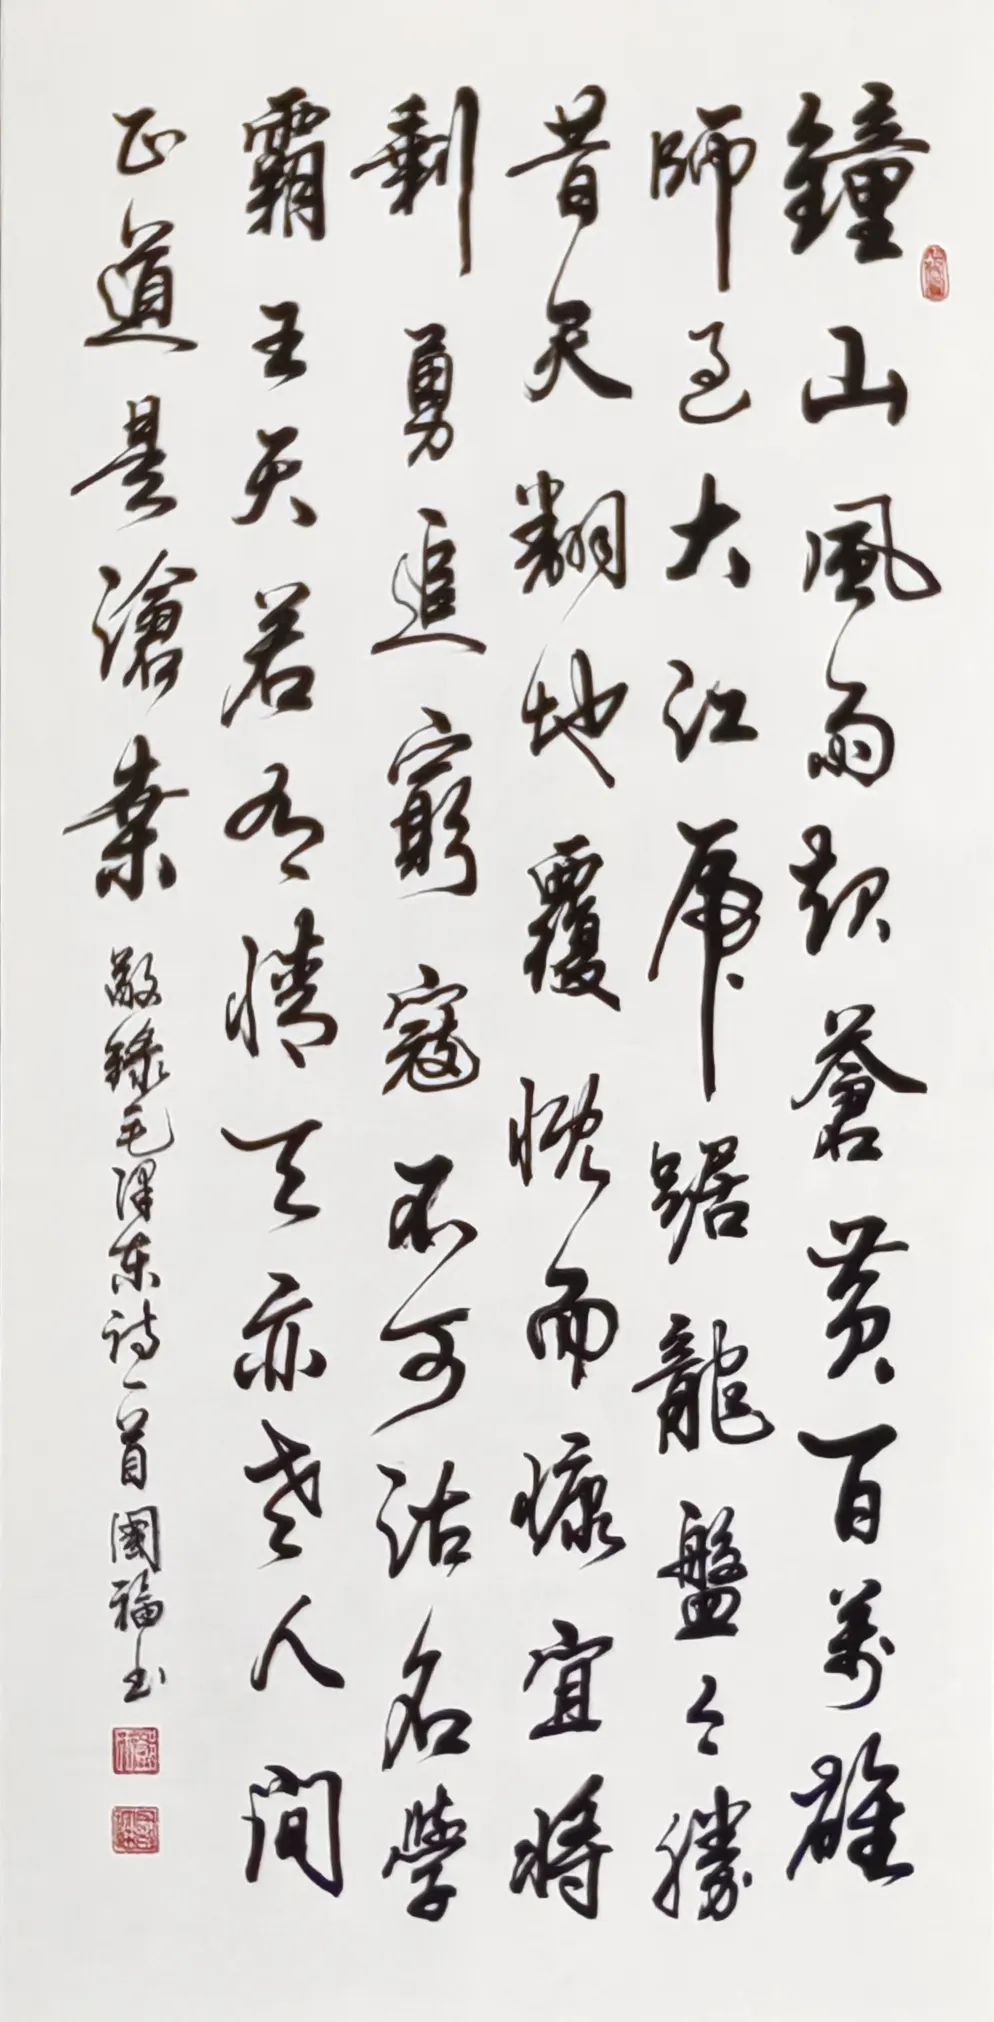 鐘山風雨起蒼黃百萬雄
師過大江虎踞龍盤今勝
昔天翻地覆慨而慷宜將
剩勇追窮寇不可沽名學
霸王天若有情天亦老人間
正道是滄桒 敬錄毛澤東詩一首 國福书